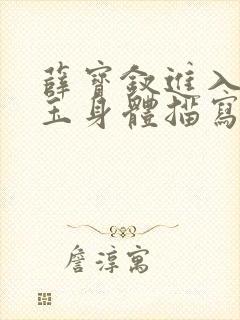 薛寶釵進入
玉身體描寫
詹淳寓